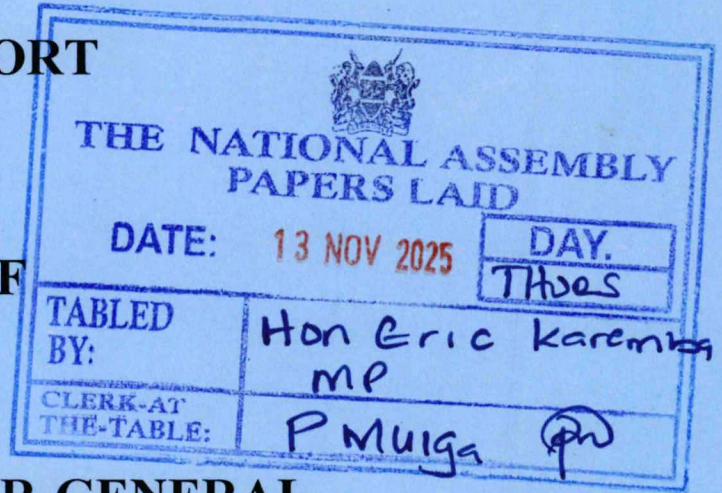 ORT
THE NATIONAL ASSEMBLY
PAPERS LAID
DATE: 13 NOV 2025 DAY.
THURS
F
TABLED BY: Hon Eric Karemba
MP
CLERK-AT THE-TABLE: P Muiga
R-GENERAL